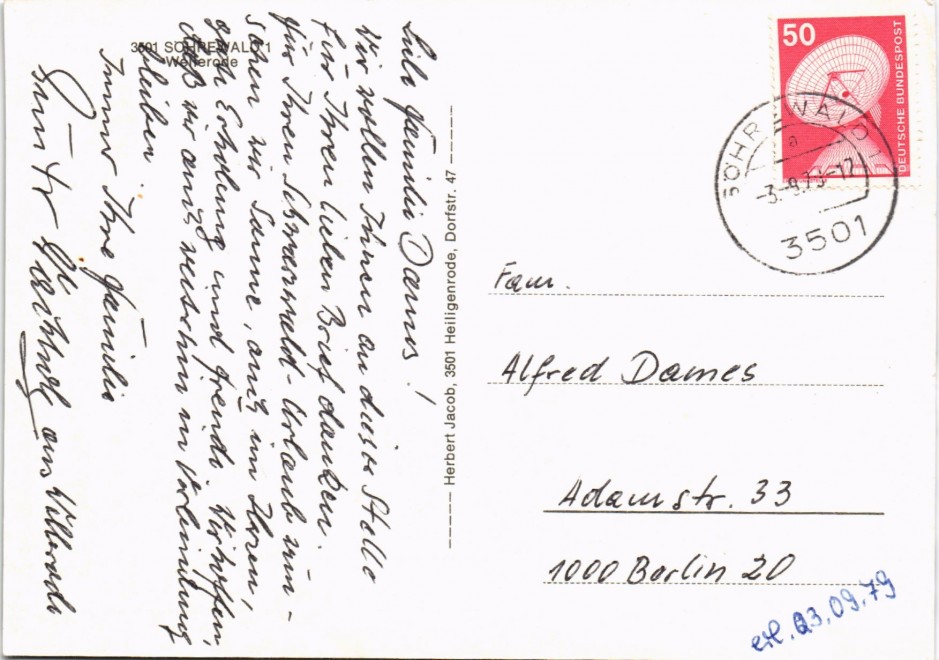 3501 SÖHREWALD 1
Wellerode
Liebe Familie Dames!
Wir wollen Ihnen an dieser Stelle
für Ihren lieben Brief danken.
Für Ihren Schwarzwald-Urlaub wün-
schen wir Sonne, auch im Herzen,
gute Erholung und Freude. Wir hoffen,
daß wir auch weiterhin in Verbindung
bleiben.
Immer Ihre Familie
aus Wellerode
Herbert Jacob, 3501 Heiligenrode, Dorfstr. 47
50
DEUTSCHE BUNDESPOST
SÖHREWALD 1
a
-3.-9.79-17
3501
Fam.
Alfred Dames
Adamstr. 33
1000 Berlin 20
erl. 23.09.79